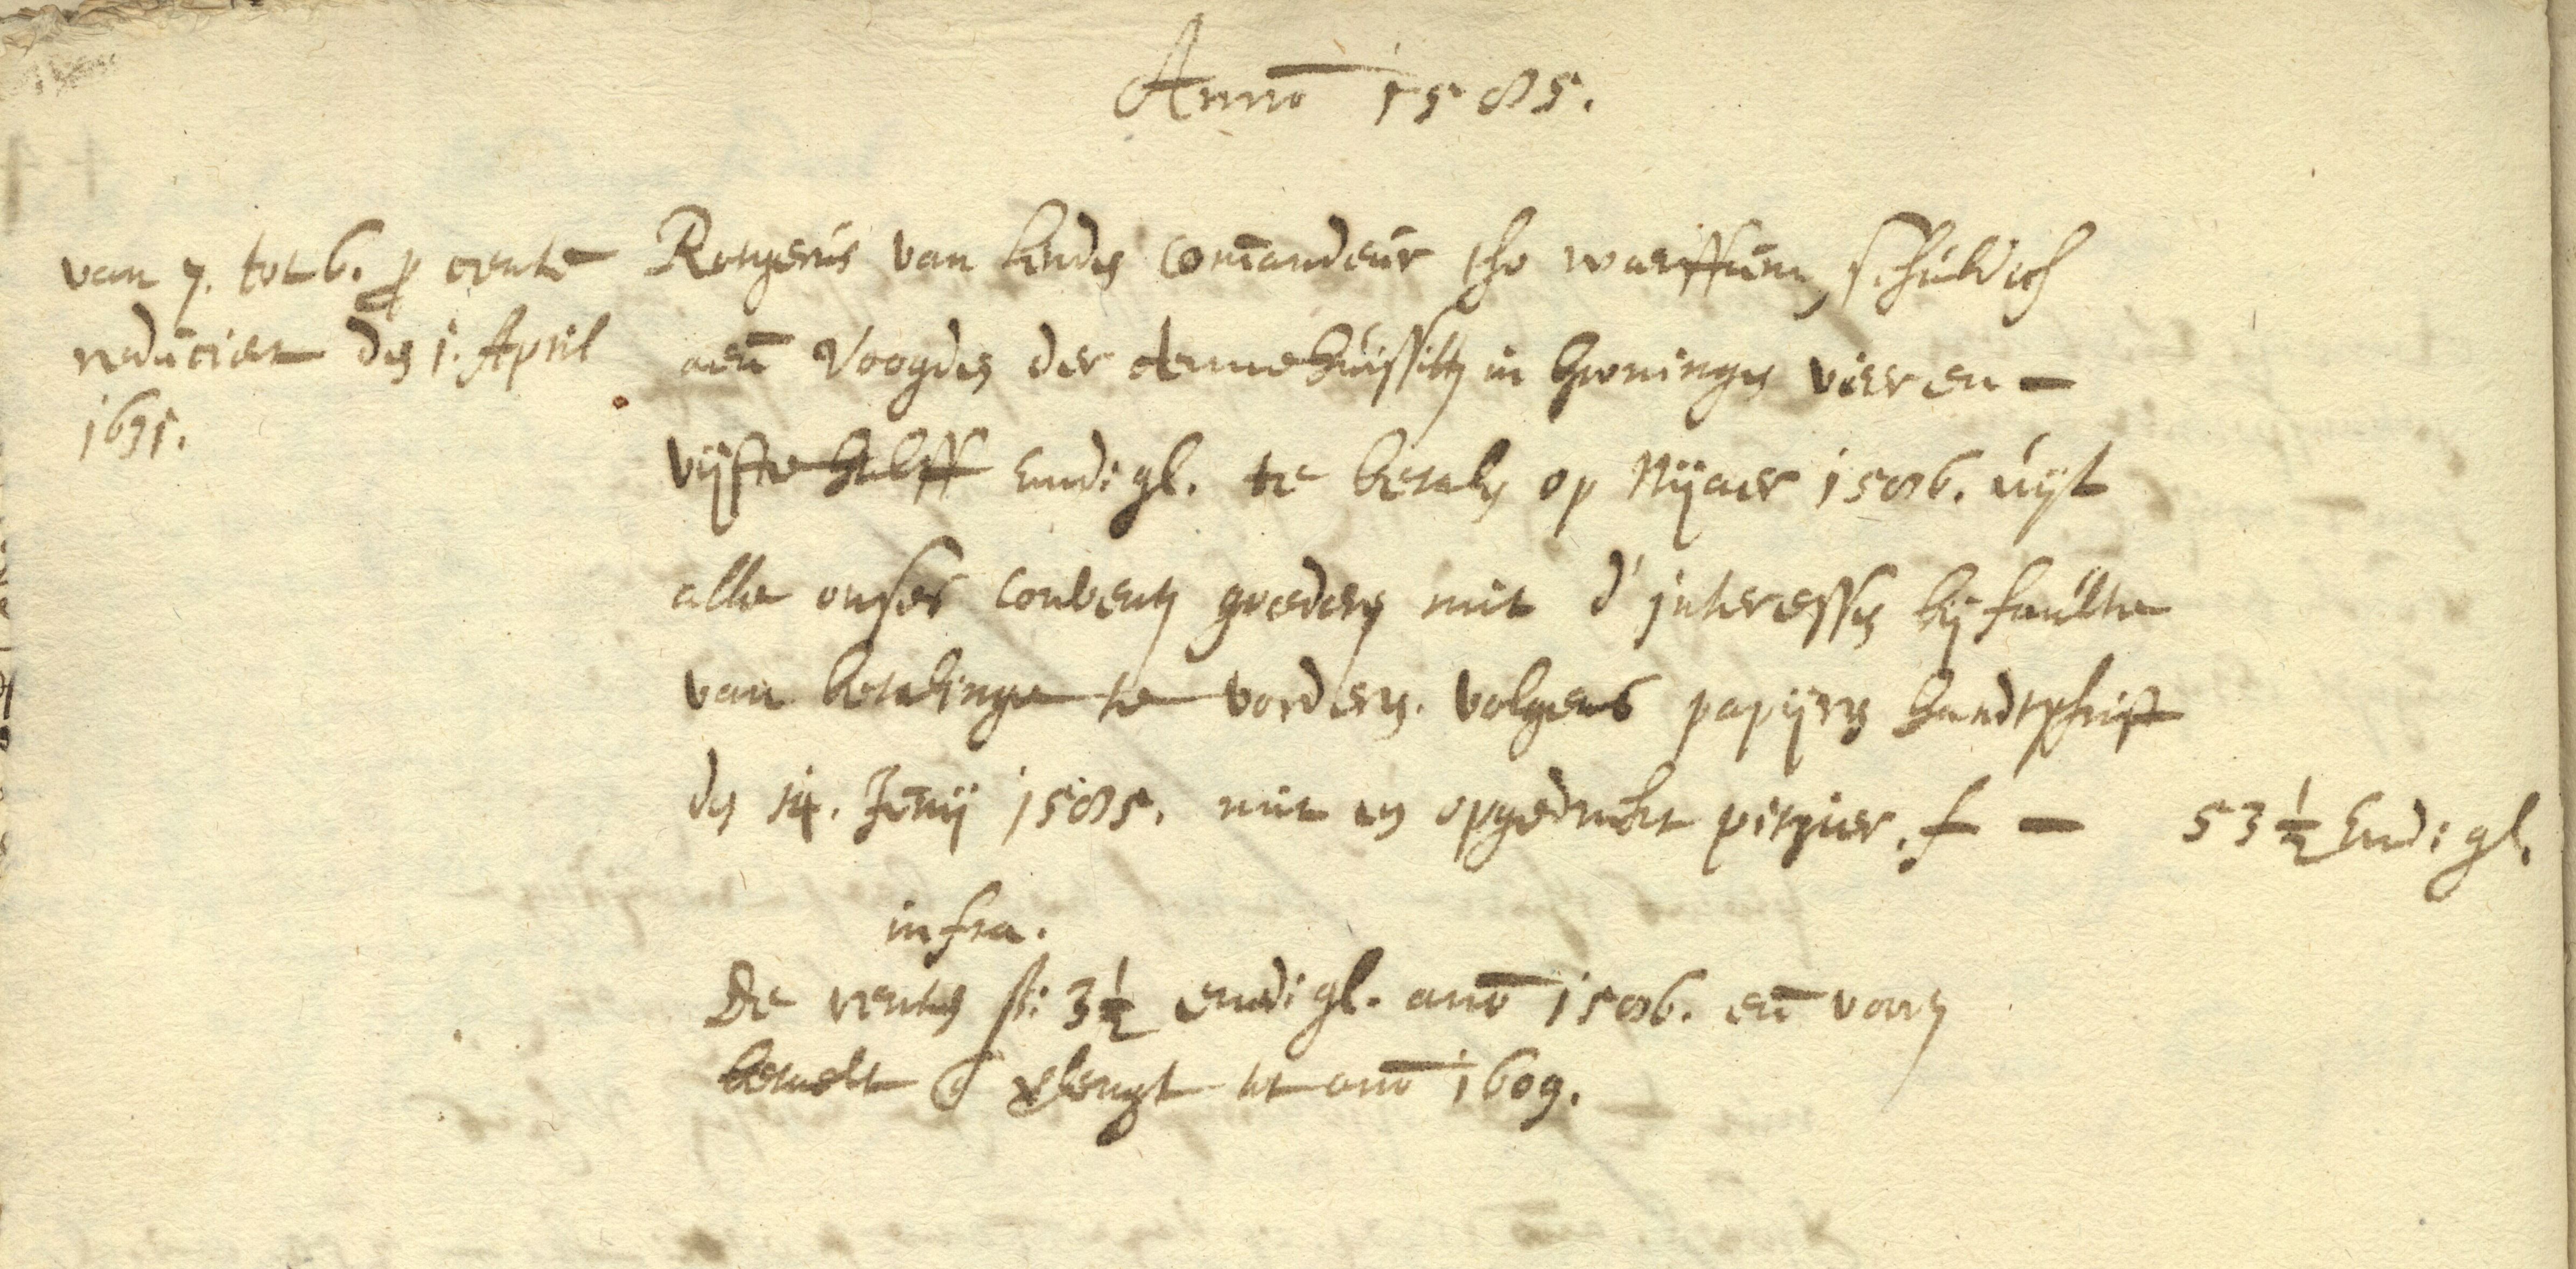 Anno 1585.
van 7. tot 6. p cento
reduciert den 1. April
1651.
Rotgerus van commandeur tho warffum, schuldich
aen Voogden der Armehuissitten in Groningen vier en -
vijftehalff Emd: gl. te betalen op Nijaer 1586. uijt
alle onses convents goederen mit d'interessen bij faulte
van betalinge te vorderen. volgens papijren handtschrift
den 14. Junij 1585. mit en opgedruckt pitzier. f - 53 ½ Emd: gl.
infra.
De renten st: 3½ emd: gl. anno 1586. en voorts
betaelt verlengt tot anno 1609.